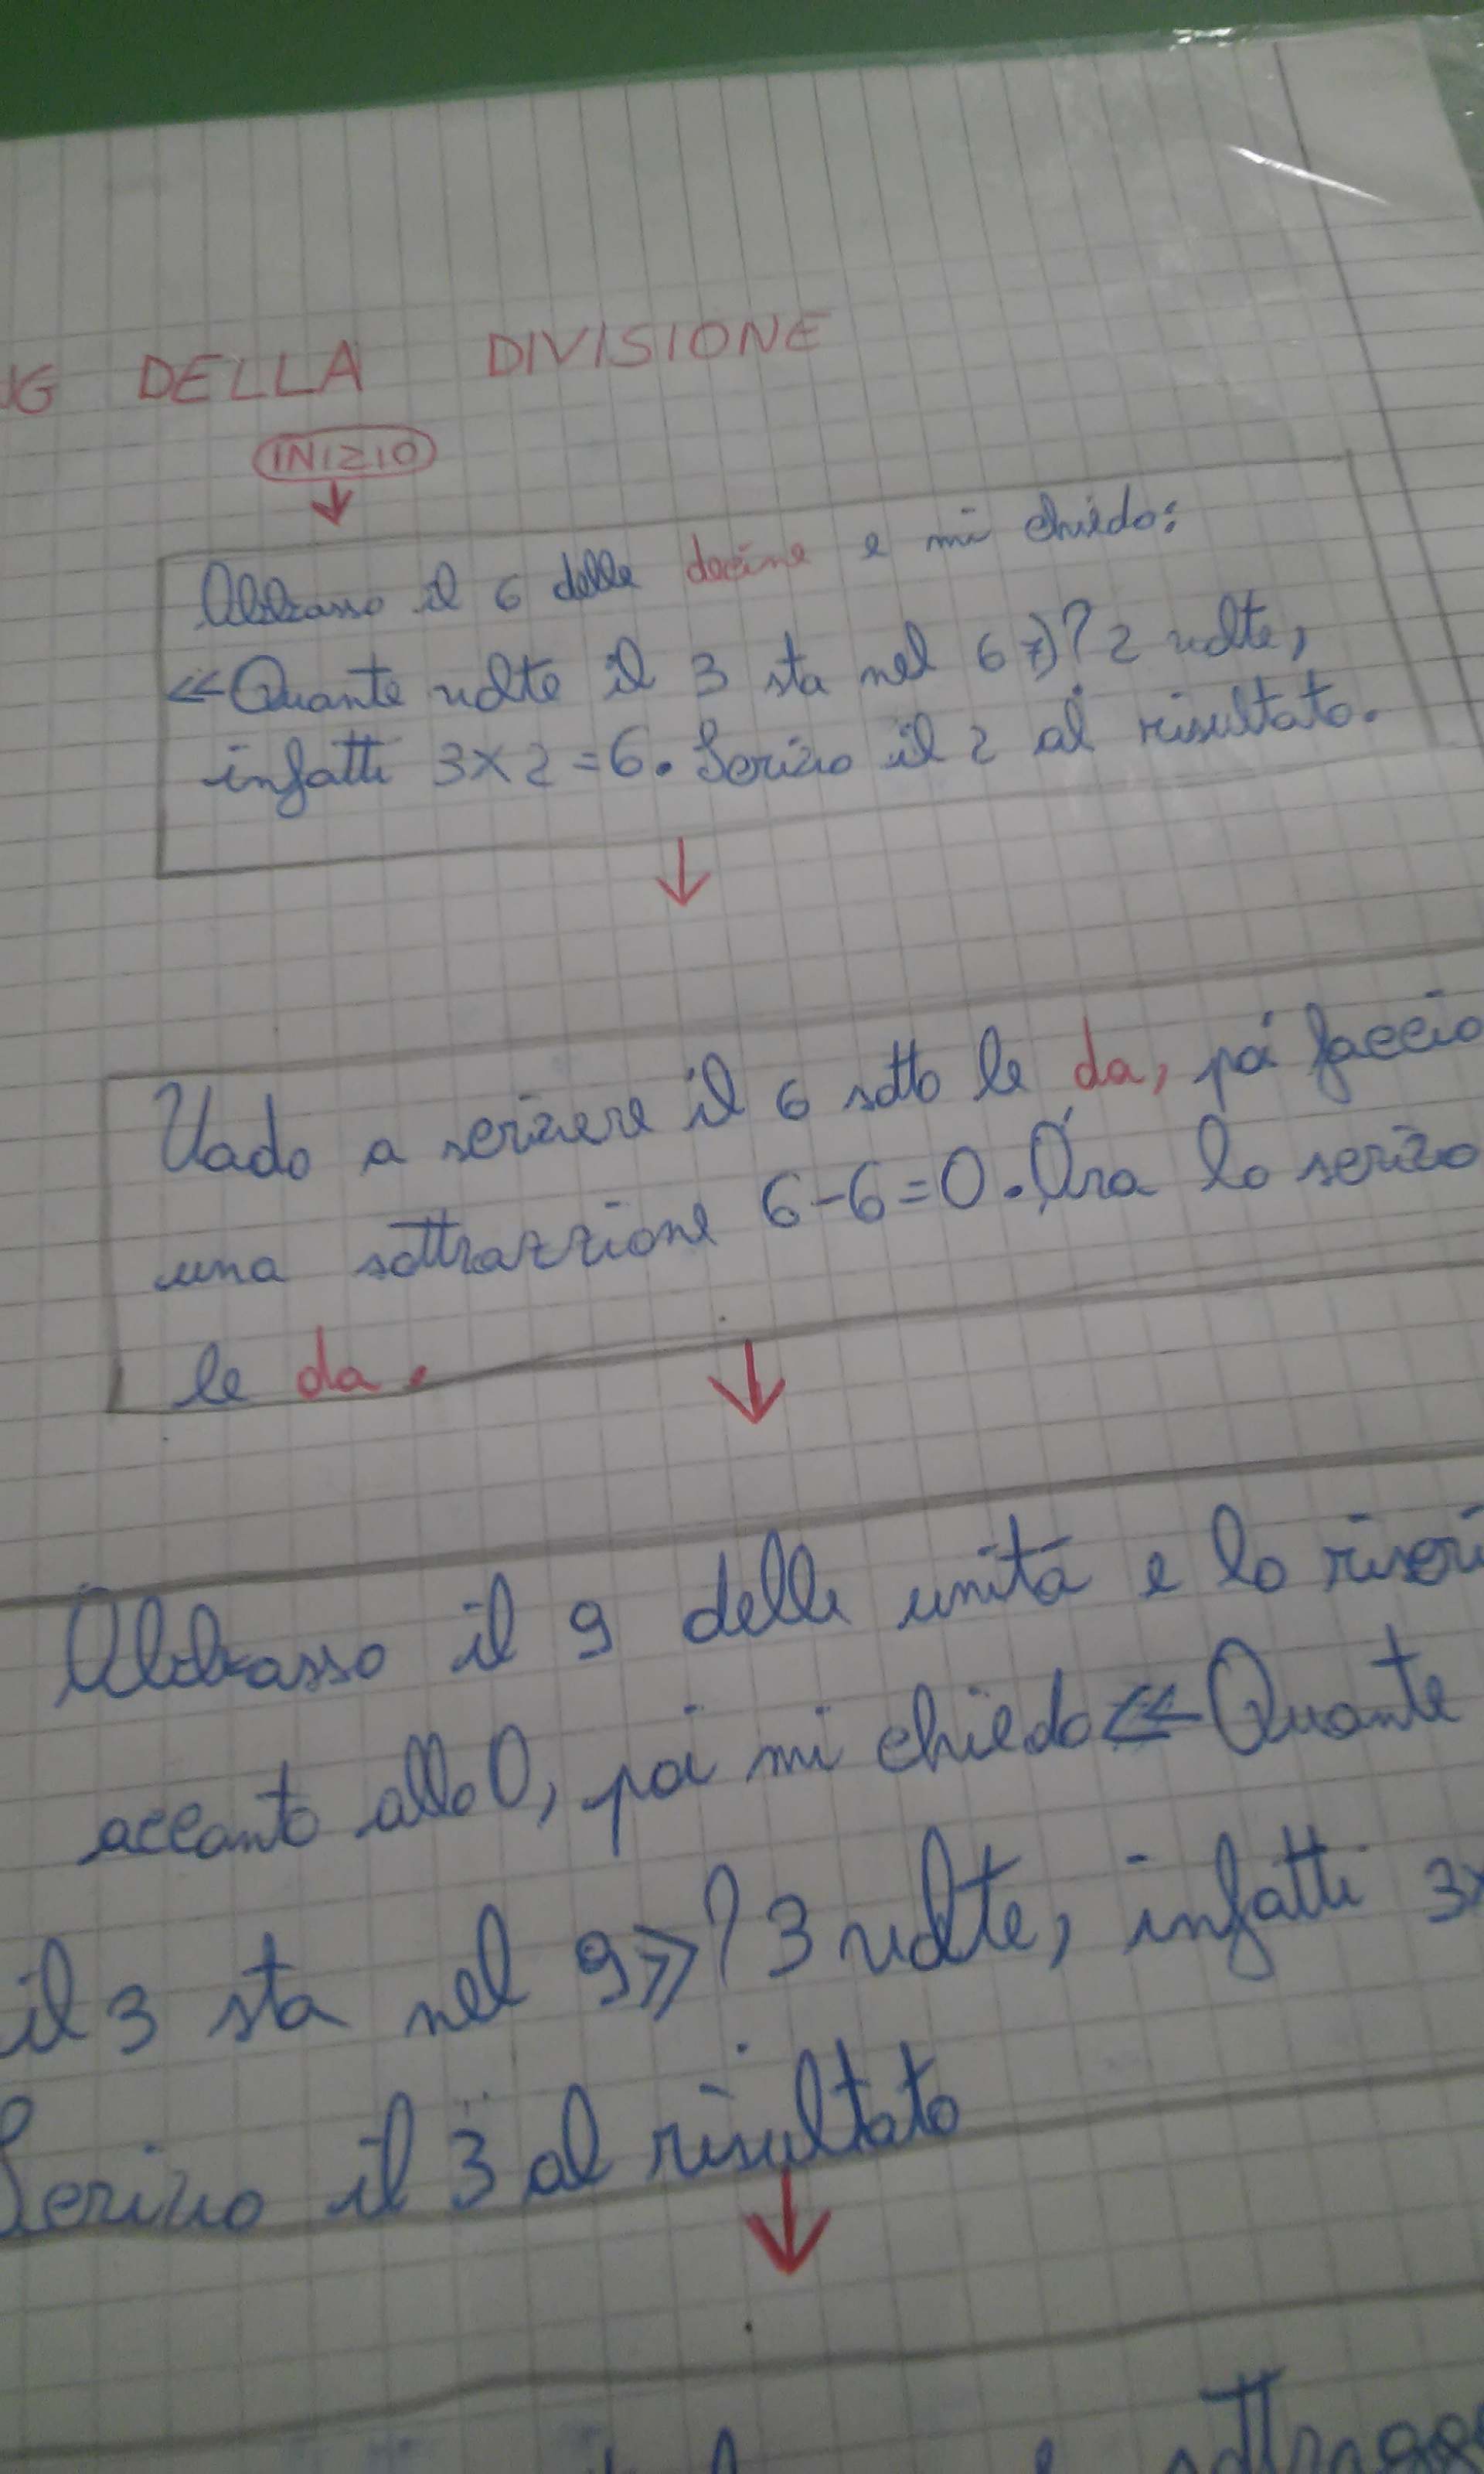 DELLA DIVISIONE
INIZIO
Abbasso il 6 delle decine e mi chiedo:
≪Quante volte il 3 sta nel 6≫? 2 volte,
infatti 3×2=6. Scrivo il 2 al risultato.
Vado a scrivere il 6 sotto le da, poi faccio
una sottrazzione 6-6=0. Ora lo scrivo
le da.
Abbasso il 9 delle unità e lo riscri
accanto allo 0, poi mi chiedo ≪Quante
il 3 sta nel 9≫? 3 volte, infatti 3×
Scrivo il 3 al risultato